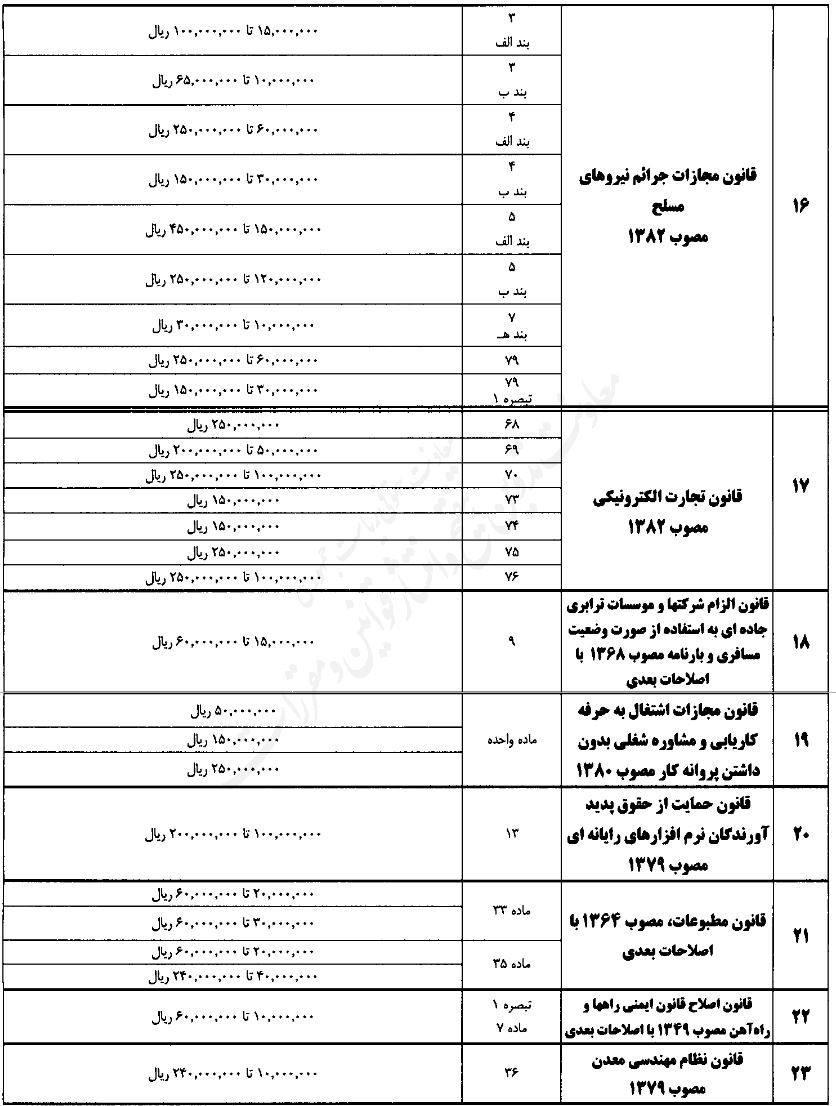 ۱۶
قانون مجازات جرائم نیروهای
مسلح
مصوب ۱۳۸۲
۳
بند الف
۱۵,۰۰۰,۰۰۰ تا ۱۰۰,۰۰۰,۰۰۰ ریال
۳
بند ب
۱۰,۰۰۰,۰۰۰ تا ۶۵,۰۰۰,۰۰۰ ریال
۴
بند الف
۶۰,۰۰۰,۰۰۰ تا ۲۵۰,۰۰۰,۰۰۰ ریال
۴
بند ب
۳۰,۰۰۰,۰۰۰ تا ۱۵۰,۰۰۰,۰۰۰ ریال
۵
بند الف
۱۵۰,۰۰۰,۰۰۰ تا ۴۵۰,۰۰۰,۰۰۰ ریال
۵
بند ب
۱۲۰,۰۰۰,۰۰۰ تا ۲۵۰,۰۰۰,۰۰۰ ریال
۷
بند هـ
۱۰,۰۰۰,۰۰۰ تا ۳۰,۰۰۰,۰۰۰ ریال
۷۹
۶۰,۰۰۰,۰۰۰ تا ۲۵۰,۰۰۰,۰۰۰ ریال
۷۹
تبصره ۱
۳۰,۰۰۰,۰۰۰ تا ۱۵۰,۰۰۰,۰۰۰ ریال
۱۷
قانون تجارت الکترونیکی
مصوب ۱۳۸۲
۶۸
۲۵۰,۰۰۰,۰۰۰ ریال
۶۹
۵۰,۰۰۰,۰۰۰ تا ۲۰۰,۰۰۰,۰۰۰ ریال
۷۰
۱۰۰,۰۰۰,۰۰۰ تا ۲۵۰,۰۰۰,۰۰۰ ریال
۷۳
۱۵۰,۰۰۰,۰۰۰ ریال
۷۴
۱۵۰,۰۰۰,۰۰۰ ریال
۷۵
۲۵۰,۰۰۰,۰۰۰ ریال
۷۶
۱۰۰,۰۰۰,۰۰۰ تا ۲۵۰,۰۰۰,۰۰۰ ریال
۱۸
قانون الزام شرکتها و موسسات ترابری
جاده ای به استفاده از صورت وضعیت
مسافری و بارنامه مصوب ۱۳۶۸ با
اصلاحات بعدی
۹
۱۵,۰۰۰,۰۰۰ تا ۶۰,۰۰۰,۰۰۰ ریال
۱۹
قانون مجازات اشتغال به حرفه
کاریابی و مشاوره شغلی بدون
داشتن پروانه کار مصوب ۱۳۸۰
ماده واحده
۵۰,۰۰۰,۰۰۰ ریال
۱۵۰,۰۰۰,۰۰۰ ریال
۲۵۰,۰۰۰,۰۰۰ ریال
۲۰
قانون حمایت از حقوق پدید
آورندگان نرم افزارهای رایانه ای
مصوب ۱۳۷۹
۱۳
۱۰۰,۰۰۰,۰۰۰ تا ۲۰۰,۰۰۰,۰۰۰ ریال
۲۱
قانون مطبوعات، مصوب ۱۳۶۴ با
اصلاحات بعدی
ماده ۳۳
۲۰,۰۰۰,۰۰۰ تا ۶۰,۰۰۰,۰۰۰ ریال
۳۰,۰۰۰,۰۰۰ تا ۶۰,۰۰۰,۰۰۰ ریال
ماده ۳۵
۲۰,۰۰۰,۰۰۰ تا ۶۰,۰۰۰,۰۰۰ ریال
۴۰,۰۰۰,۰۰۰ تا ۲۴۰,۰۰۰,۰۰۰ ریال
۲۲
قانون اصلاح قانون ایمنی راهها و
راه‌آهن مصوب ۱۳۴۹ با اصلاحات بعدی
تبصره ۱
ماده ۷
۱۰,۰۰۰,۰۰۰ تا ۶۰,۰۰۰,۰۰۰ ریال
۲۳
قانون نظام مهندسی معدن
مصوب ۱۳۷۹
۳۶
۱۰,۰۰۰,۰۰۰ تا ۲۴۰,۰۰۰,۰۰۰ ریال